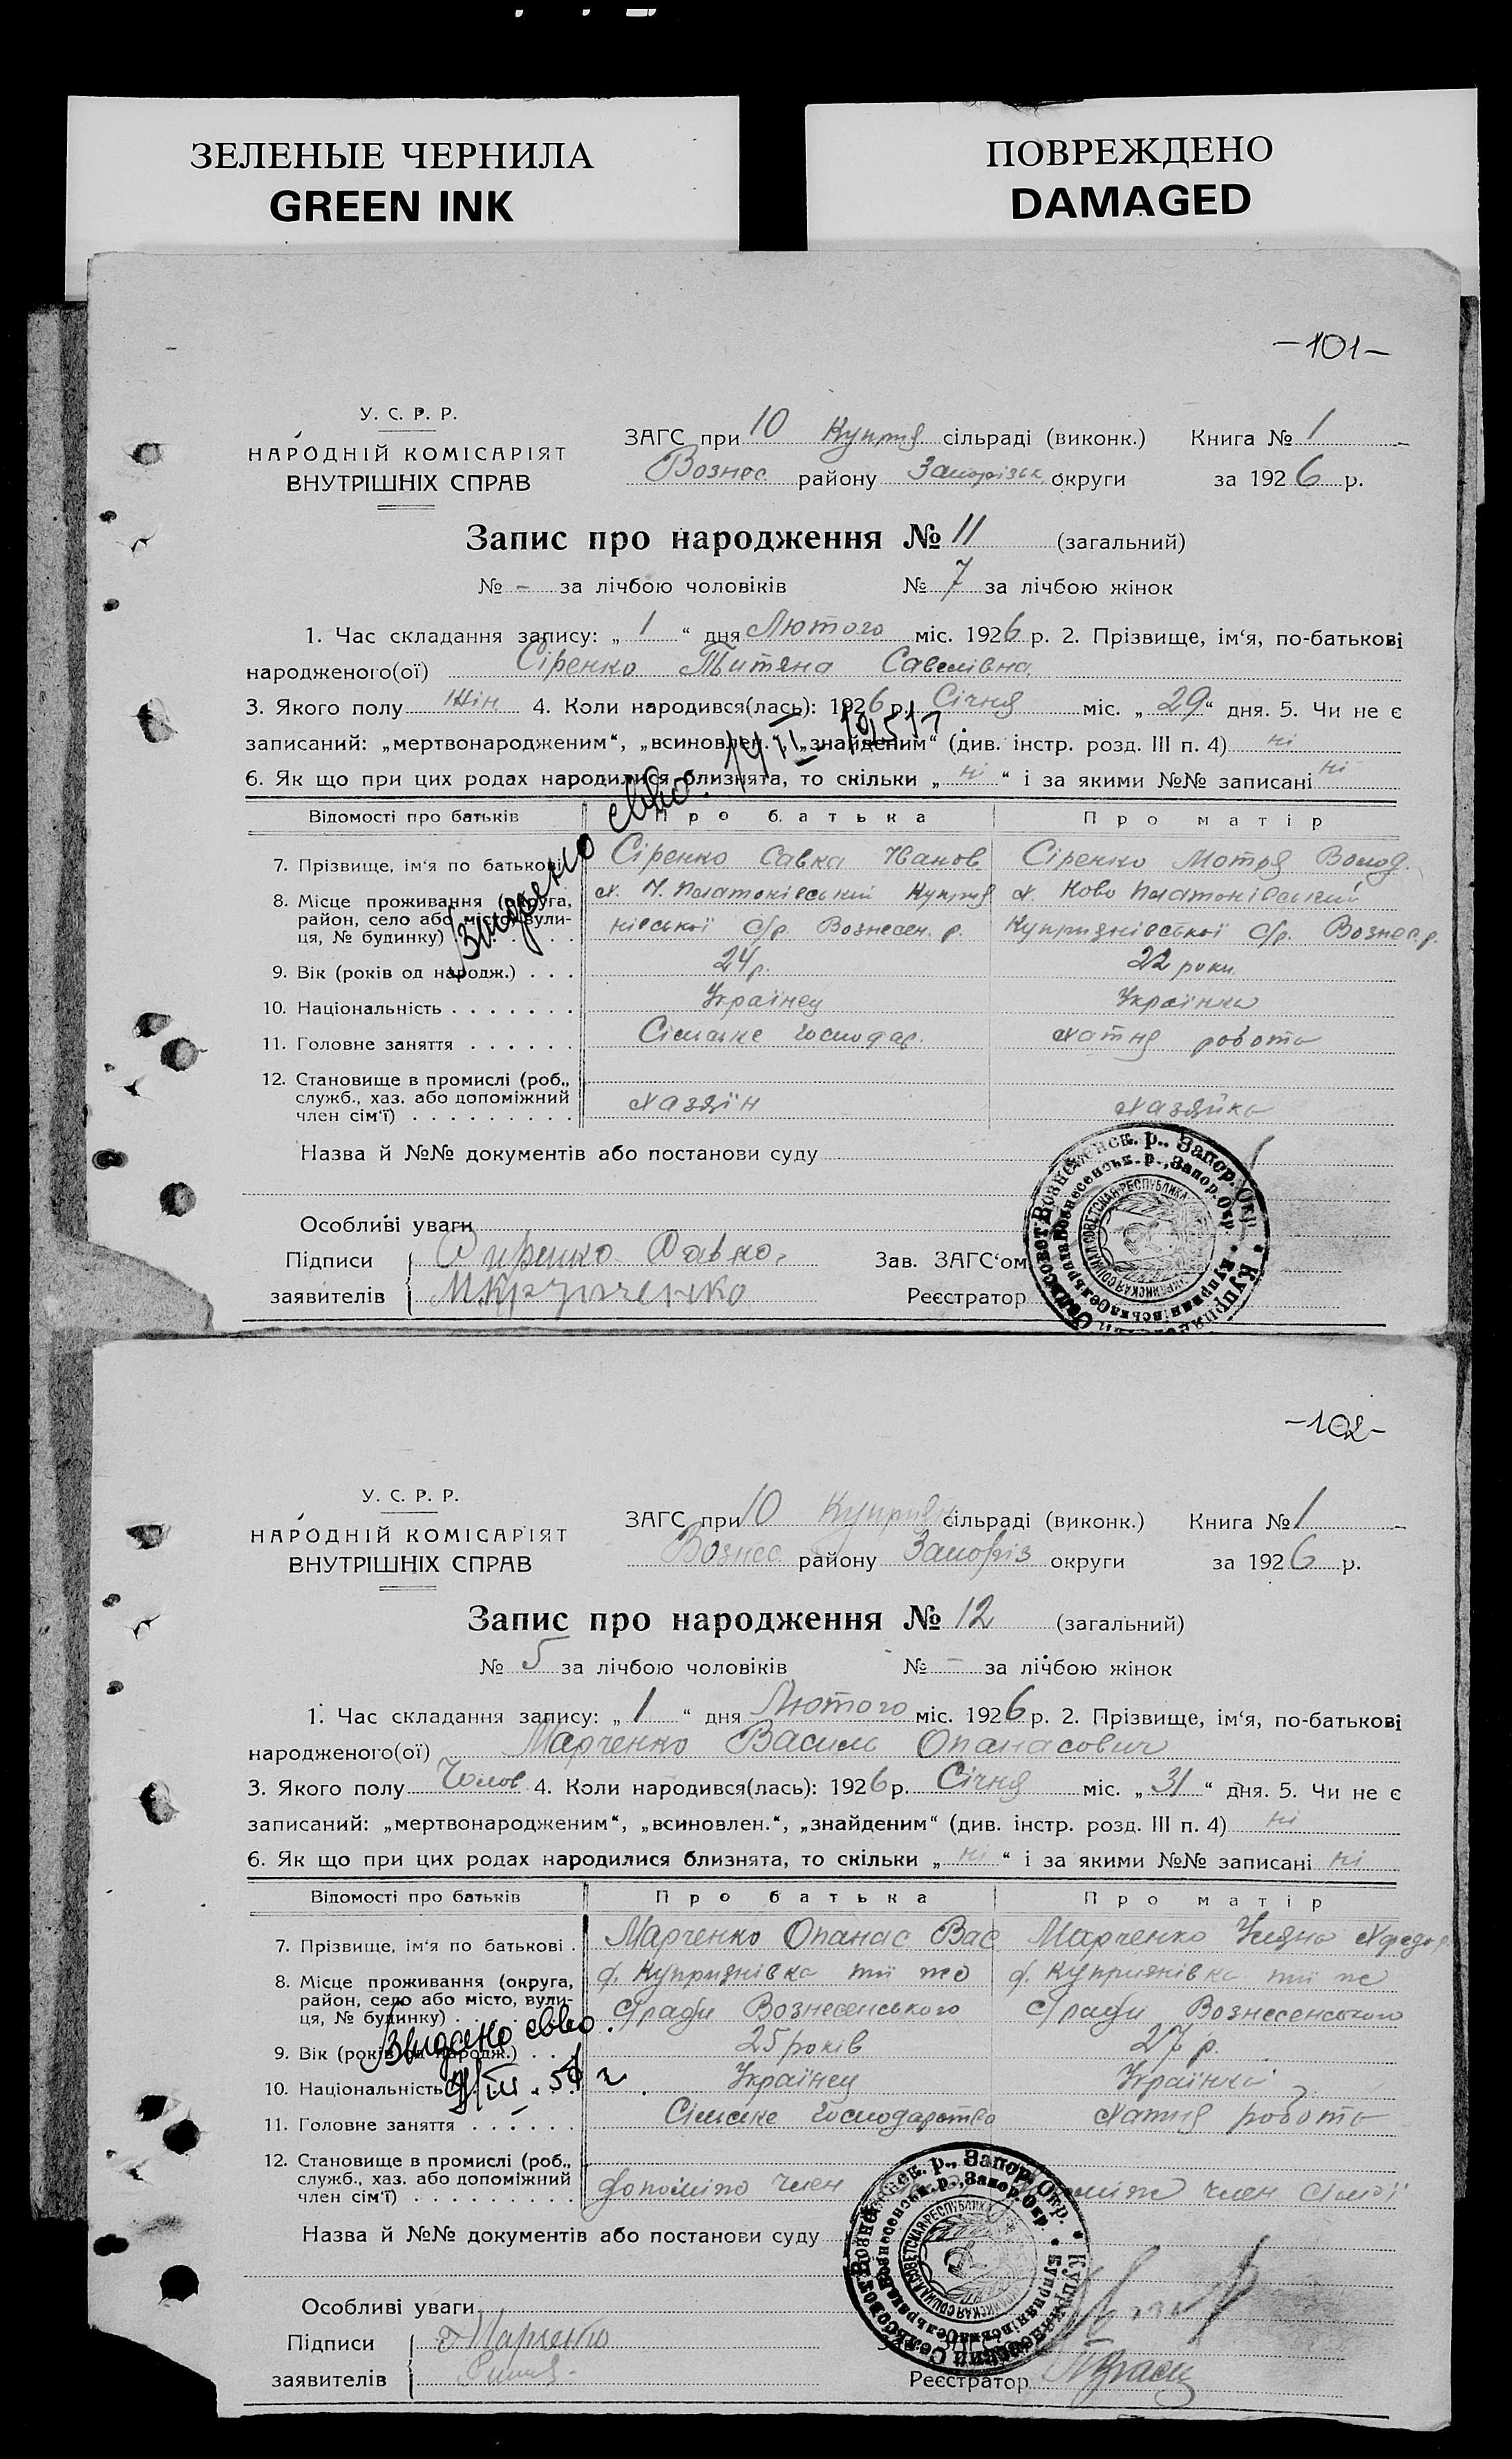 ЗЕЛЕНЫЕ ЧЕРНИЛА
GREEN INK
ПОВРЕЖДЕНО
DAMAGED
-101-
У. С. Р. Р.
НАРОДНІЙ КОМІСАРІЯТ
ВНУТРІШНІХ СПРАВ
ЗАГС при 10 Купря сільраді (виконк.) Книга № 1
Вознес району Запорізьк округи за 1926 р.
Запис про народження № 11 (загальний)
№ - за лічбою чоловіків № 7 за лічбою жінок
1. Час складання запису: „ 1 “ дня Лютого міс. 1926 р. 2. Прізвище, ім‘я, по-батькові
народженого(ої) Сіренко Титяна Савелівна
3. Якого полу жін 4. Коли народився(лась): 1926 р. Січня міс. „ 29 “ дня. 5. Чи не є
записаний: „мертвонародженим“, „всиновлен.“, „знайденим“ (див. інстр. розд. III п. 4) ні
6. Як що при цих родах народилися близнята, то скільки „ ні “ і за якими №№ записані ні
Відомості про батьків Про батька Про матір
7. Прізвище, ім‘я по батькові Сіренко Савка Іванов Сіренко Мотря Волод.
8. Місце проживання (округа, х. Н. Платонівський Купря х. Ново Платонівський
район, село або місто, вули- нівської с/р. Вознесен. р. Купріянівської с/р. Вознес р.
ця, № будинку)
9. Вік (років од народж.) . . . 24 р. 22 роки
10. Національність . . . . . . . Українец Українка
11. Головне заняття . . . . . . Сільське господар. Хатня робота
12. Становище в промислі (роб.,
служб., хаз. або допоміжний Хазяїн Хазяйка
член сім‘ї) . . . . . . . . .
Видано свво. 14/II-1951 г
Назва й №№ документів або постанови суду
Особливі уваги
Підписи Сиренко Савка
заявителів
Зав. ЗАГС‘ом
Реєстратор
-102-
У. С. Р. Р.
НАРОДНІЙ КОМІСАРІЯТ
ВНУТРІШНІХ СПРАВ
ЗАГС при 10 Купрян сільраді (виконк.) Книга № 1
Вознес району Запоріз округи за 1926 р.
Запис про народження № 12 (загальний)
№ 5 за лічбою чоловіків № - за лічбою жінок
1. Час складання запису: „ 1 “ дня Лютого міс. 1926 р. 2. Прізвище, ім‘я, по-батькові
народженого(ої) Марченко Василь Опанасович
3. Якого полу Чолов 4. Коли народився(лась): 1926 р. Січня міс. „ 31 “ дня. 5. Чи не є
записаний: „мертвонародженим“, „всиновлен.“, „знайденим“ (див. інстр. розд. III п. 4) ні
6. Як що при цих родах народилися близнята, то скільки „ ні “ і за якими №№ записані ні
Відомості про батьків Про батька Про матір
7. Прізвище, ім‘я по батькові . Марченко Опанас Вас Марченко Уляна
8. Місце проживання (округа, с. Куприянівка тії же с. Куприянівка тії же
район, село або місто, вули- с/ради Вознесенського с/ради Вознесенського
ця, № будинку)
9. Вік (років од народж.) . . . 25 років 27 р.
10. Національність Українец Українка
11. Головне заняття . . . . . . Сільське господарство Хатня робота
12. Становище в промислі (роб.,
служб., хаз. або допоміжний допоміж член член сімї
член сім‘ї) . . . . . . . . .
Видано свво.
Назва й №№ документів або постанови суду
Особливі уваги
Підписи Марченко
заявителів
Реєстратор